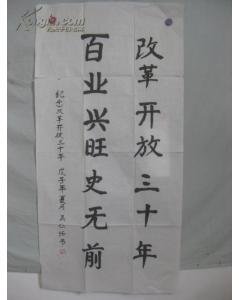 改革开放三十年
百业兴旺史无前
纪念改革开放三十年 戊子年夏月